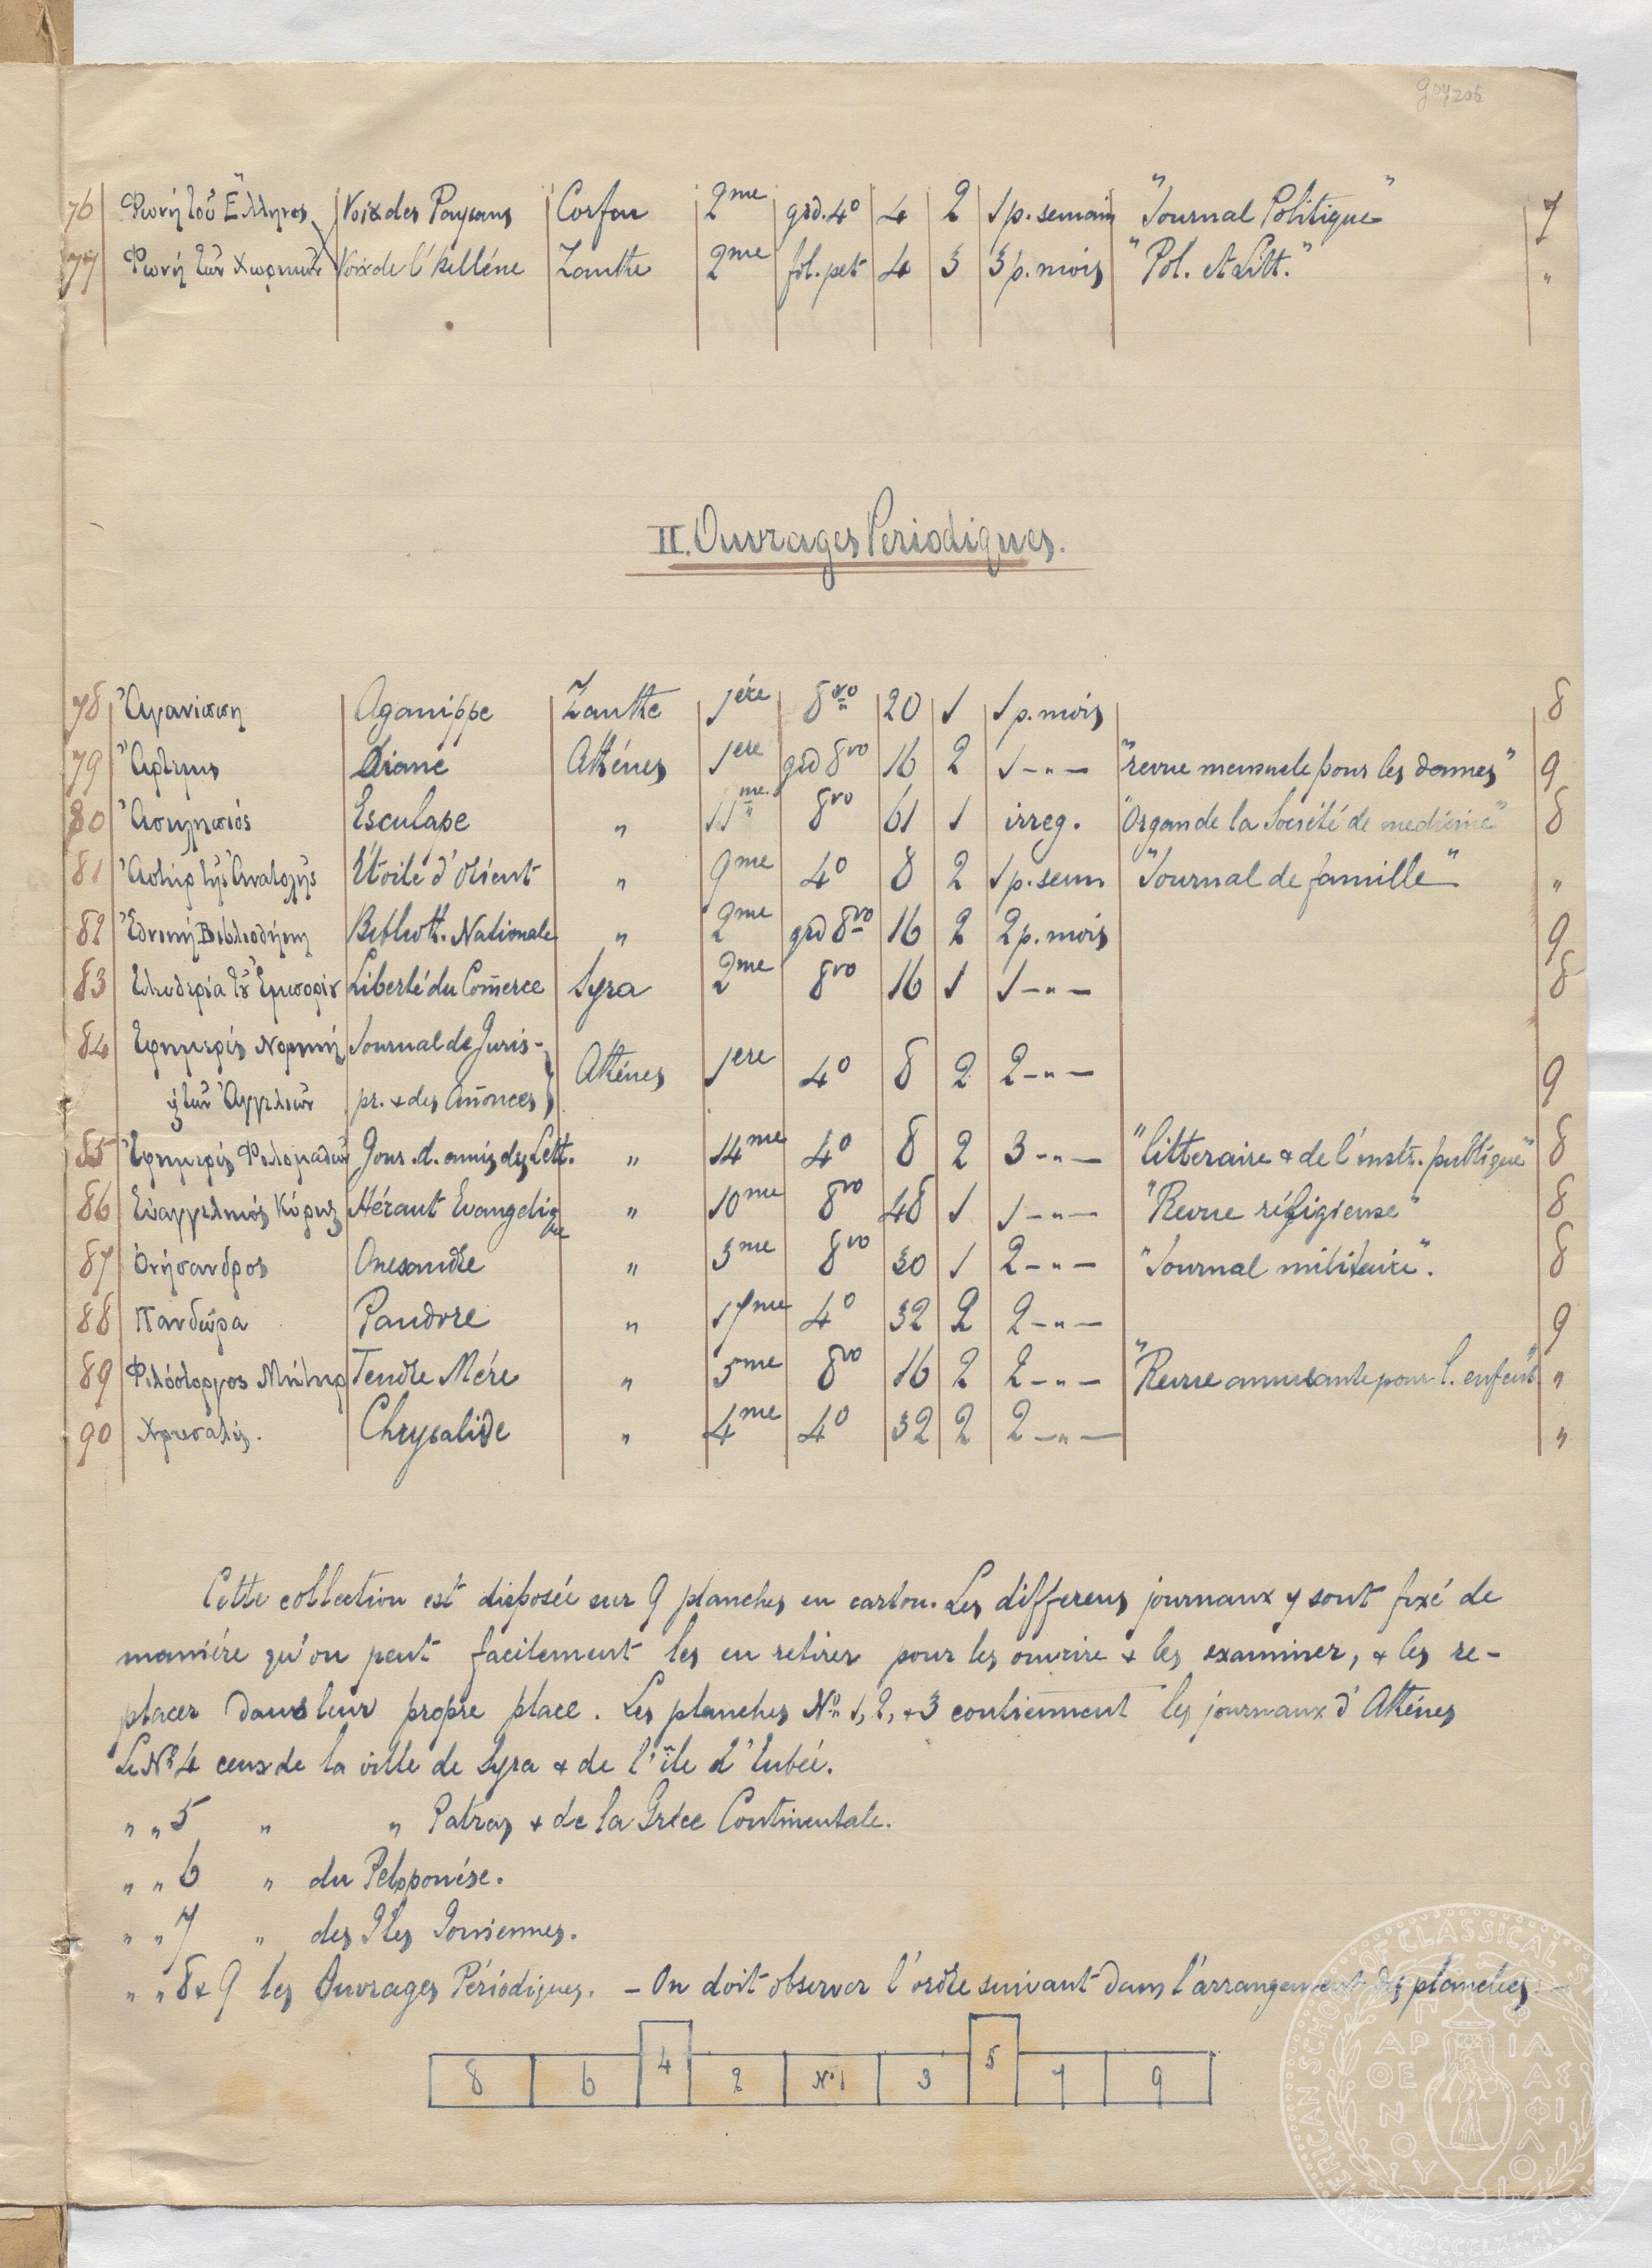 76 Φωνὴ τοῦ Ἕλληνος Voix des Paysans Corfou 2me grd. 4o 4 2 1 p. semain "Journal Politique" 7
77 Φωνὴ τῶν Χωρικῶν Voix de l'Helléne Zanthe 2me fol. pet 4 3 3 p. mois "Pol. et Litt." "
II. Ouvrages Periodiques.
78 Ἀγανίππη Aganippe Zanthe 1ére 8vo 20 1 1 p. mois 8
79 Ἄρτεμις Diane Athénes 1ere grd 8vo 16 2 1 -"- "revue mensuele pour les dames" 9
80 Ἀσκληπιός Esculape " 11me 8vo 61 1 irreg. "Organ de la Société de medicine" 8
81 Ἀστὴρ τῆς Ἀνατολῆς Etoile d'Orient " 9me 4o 8 2 1 p. sem "Journal de famille" "
82 Ἐθνικὴ Βιβλιοθήκη Biblioth. Nationale " 2me grd 8vo 16 2 2 p. mois 9
83 Ἐλευθερία τȣ Ἐμπορίȣ Liberté du Com̄erce Syra 2me 8vo 16 1 1 -"- 8
84 Ἐφημερὶς Νομικὴ Journal de Juris-
ϗ τῶν Ἀγγελιῶν pr. & des An̄onces } Athénes 1ere 4o 8 2 2 -"- 9
85 Ἐφημερὶς Φιλομαθῶν Jour. d. amis des Lett. " 14me 4o 8 2 3 -"- "litteraire & de l'instr. publique" 8
86 Εὐαγγελικὸς Κήρυξ Héraut Evangelique " 10me 8vo 48 1 1 -"- "Revue réligieuse" 8
87 Ὀνήσανδρος Onesandre " 3me 8vo 30 1 2 -"- "Journal militaire". 8
88 Πανδώρα Pandore " 17me 4o 32 2 2 -"- 9
89 Φιλόστοργος Μήτηρ Tendre Mére " 5me 8vo 16 2 2 -"- "Revue amusante pour l. enfents" "
90 Χρυσαλίς. Chrysalide " 4me 4o 32 2 2 -"- "
Cette collection est disposée sur 9 planches en carton. Les differens journaux y sont fixé de
maniére qu'on peut facilement les en retirer pour les ouvrire & les examiner, & les re-
placer dans leur propre place. Les planches No 1, 2, & 3 contiennent les journaux d'Athénes
Le No 4 ceux de la ville de Syra & de l'ile d'Eubée.
" " 5 " " Patras & de la Gréce Continentale.
" " 6 " du Peloponése.
" " 7 " des Iles Ioniennes.
" " 8 & 9 les Ouvrages Périódiques. - On doit observer l'ordre suivant dans l'arrangement des planches: -
8 6 4 2 No 1 3 5 7 9
AMERICAN SCHOOL OF CLASSICAL STUDIES
ΠΑΡΘΕΝΟΥ ΦΙΛΑΣ ΦΙΛΟ
MDCCCLXXXI